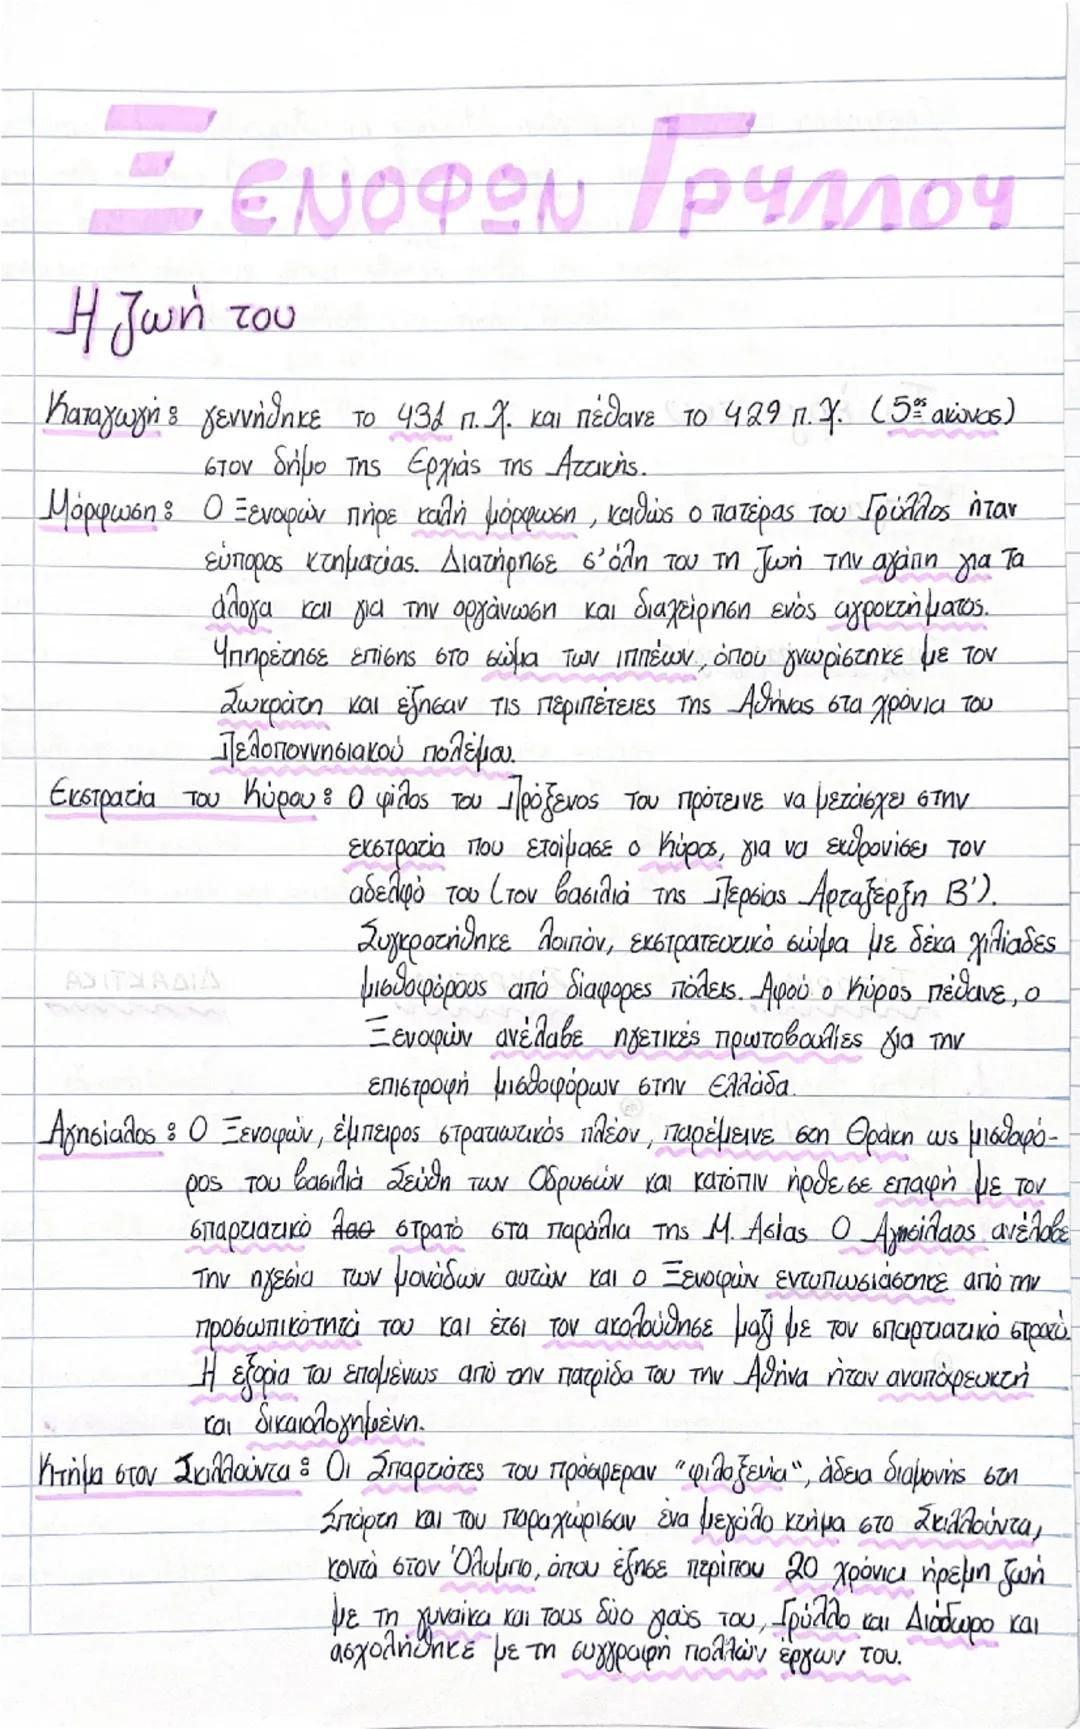 ΞΕΝΟΦΩΝ ΓΡΥΛΛΟΥ
Η ζωή του
Καταγωγή: γεννήθηκε το 431 π.Χ. και πέθανε το 429 π.Χ. (5ος αιώνας)
στον δήμο της Ερχιάς της Αττικής.
Μόρφωση: Ο Ξενοφών πήρε καλή μόρφωση, καθώς ο πατέρας του Γρύλλος ήταν
εύπορος κτηματίας. Διατήρησε σ' όλη του τη ζωή την αγάπη για τα
άλογα και για την οργάνωση και διαχείρηση ενός αγροκτήματος.
Υπηρέτησε επίσης στο σώμα των ιππέων, όπου γνωρίστηκε με τον
Σωκράτη και έζησαν τις περιπέτειες της Αθήνας στα χρόνια του
Πελοποννησιακού πολέμου.
Εκστρατία του Κύρου: Ο φίλος του Πρόξενος του πρότεινε να μετάσχει στην
εκστρατία που ετοίμασε ο Κύρος, για να εκθρονίσει τον
αδελφό του (τον βασιλιά της Περσίας Αρταξέρξη Β').
Συγκροτήθηκε λοιπόν, εκστρατευτικό σώμα με δέκα χιλιάδες
μισθοφόρους από διάφορες πόλεις. Αφού ο Κύρος πέθανε, ο
Ξενοφών ανέλαβε ηγετικές πρωτοβουλίες για την
επιστροφή μισθοφόρων στην Ελλάδα.
Αγησίαλος: Ο Ξενοφών, έμπειρος στρατιωτικός πλέον, παρέμεινε στη Θράκη ως μισθοφό-
ρος του βασιλιά Σεύθη των Οδρυσών και κατόπιν ήρθε σε επαφή με τον
σπαρτιατικό στρατό στα παράλια της Μ. Ασίας. Ο Αγησίλαος ανέλαβε
την ηγεσία των μονάδων αυτών και ο Ξενοφών εντυπωσιάστηκε από την
προσωπικότητά του και έτσι τον ακολούθησε μαζί με τον σπαρτιατικό στρατό.
Η εξορία του επομένως από την πατρίδα του την Αθήνα ήταν αναπόφευκτή
και δικαιολογημένη.
Κτήμα στον Σκιλλούντα: Οι Σπαρτιάτες του πρόσφεραν "φιλοξενία", άδεια διαμονής στη
Σπάρτη και του παραχώρισαν ένα μεγάλο κτήμα στο Σκιλλούντα,
κοντά στον Όλυμπο, όπου έζησε περίπου 20 χρόνια ήρεμη ζωή
με τη γυναίκα και τους δύο γιούς του, Γρύλλο και Διόδωρο και
ασχολήθηκε με τη συγγραφή πολλών έργων του.